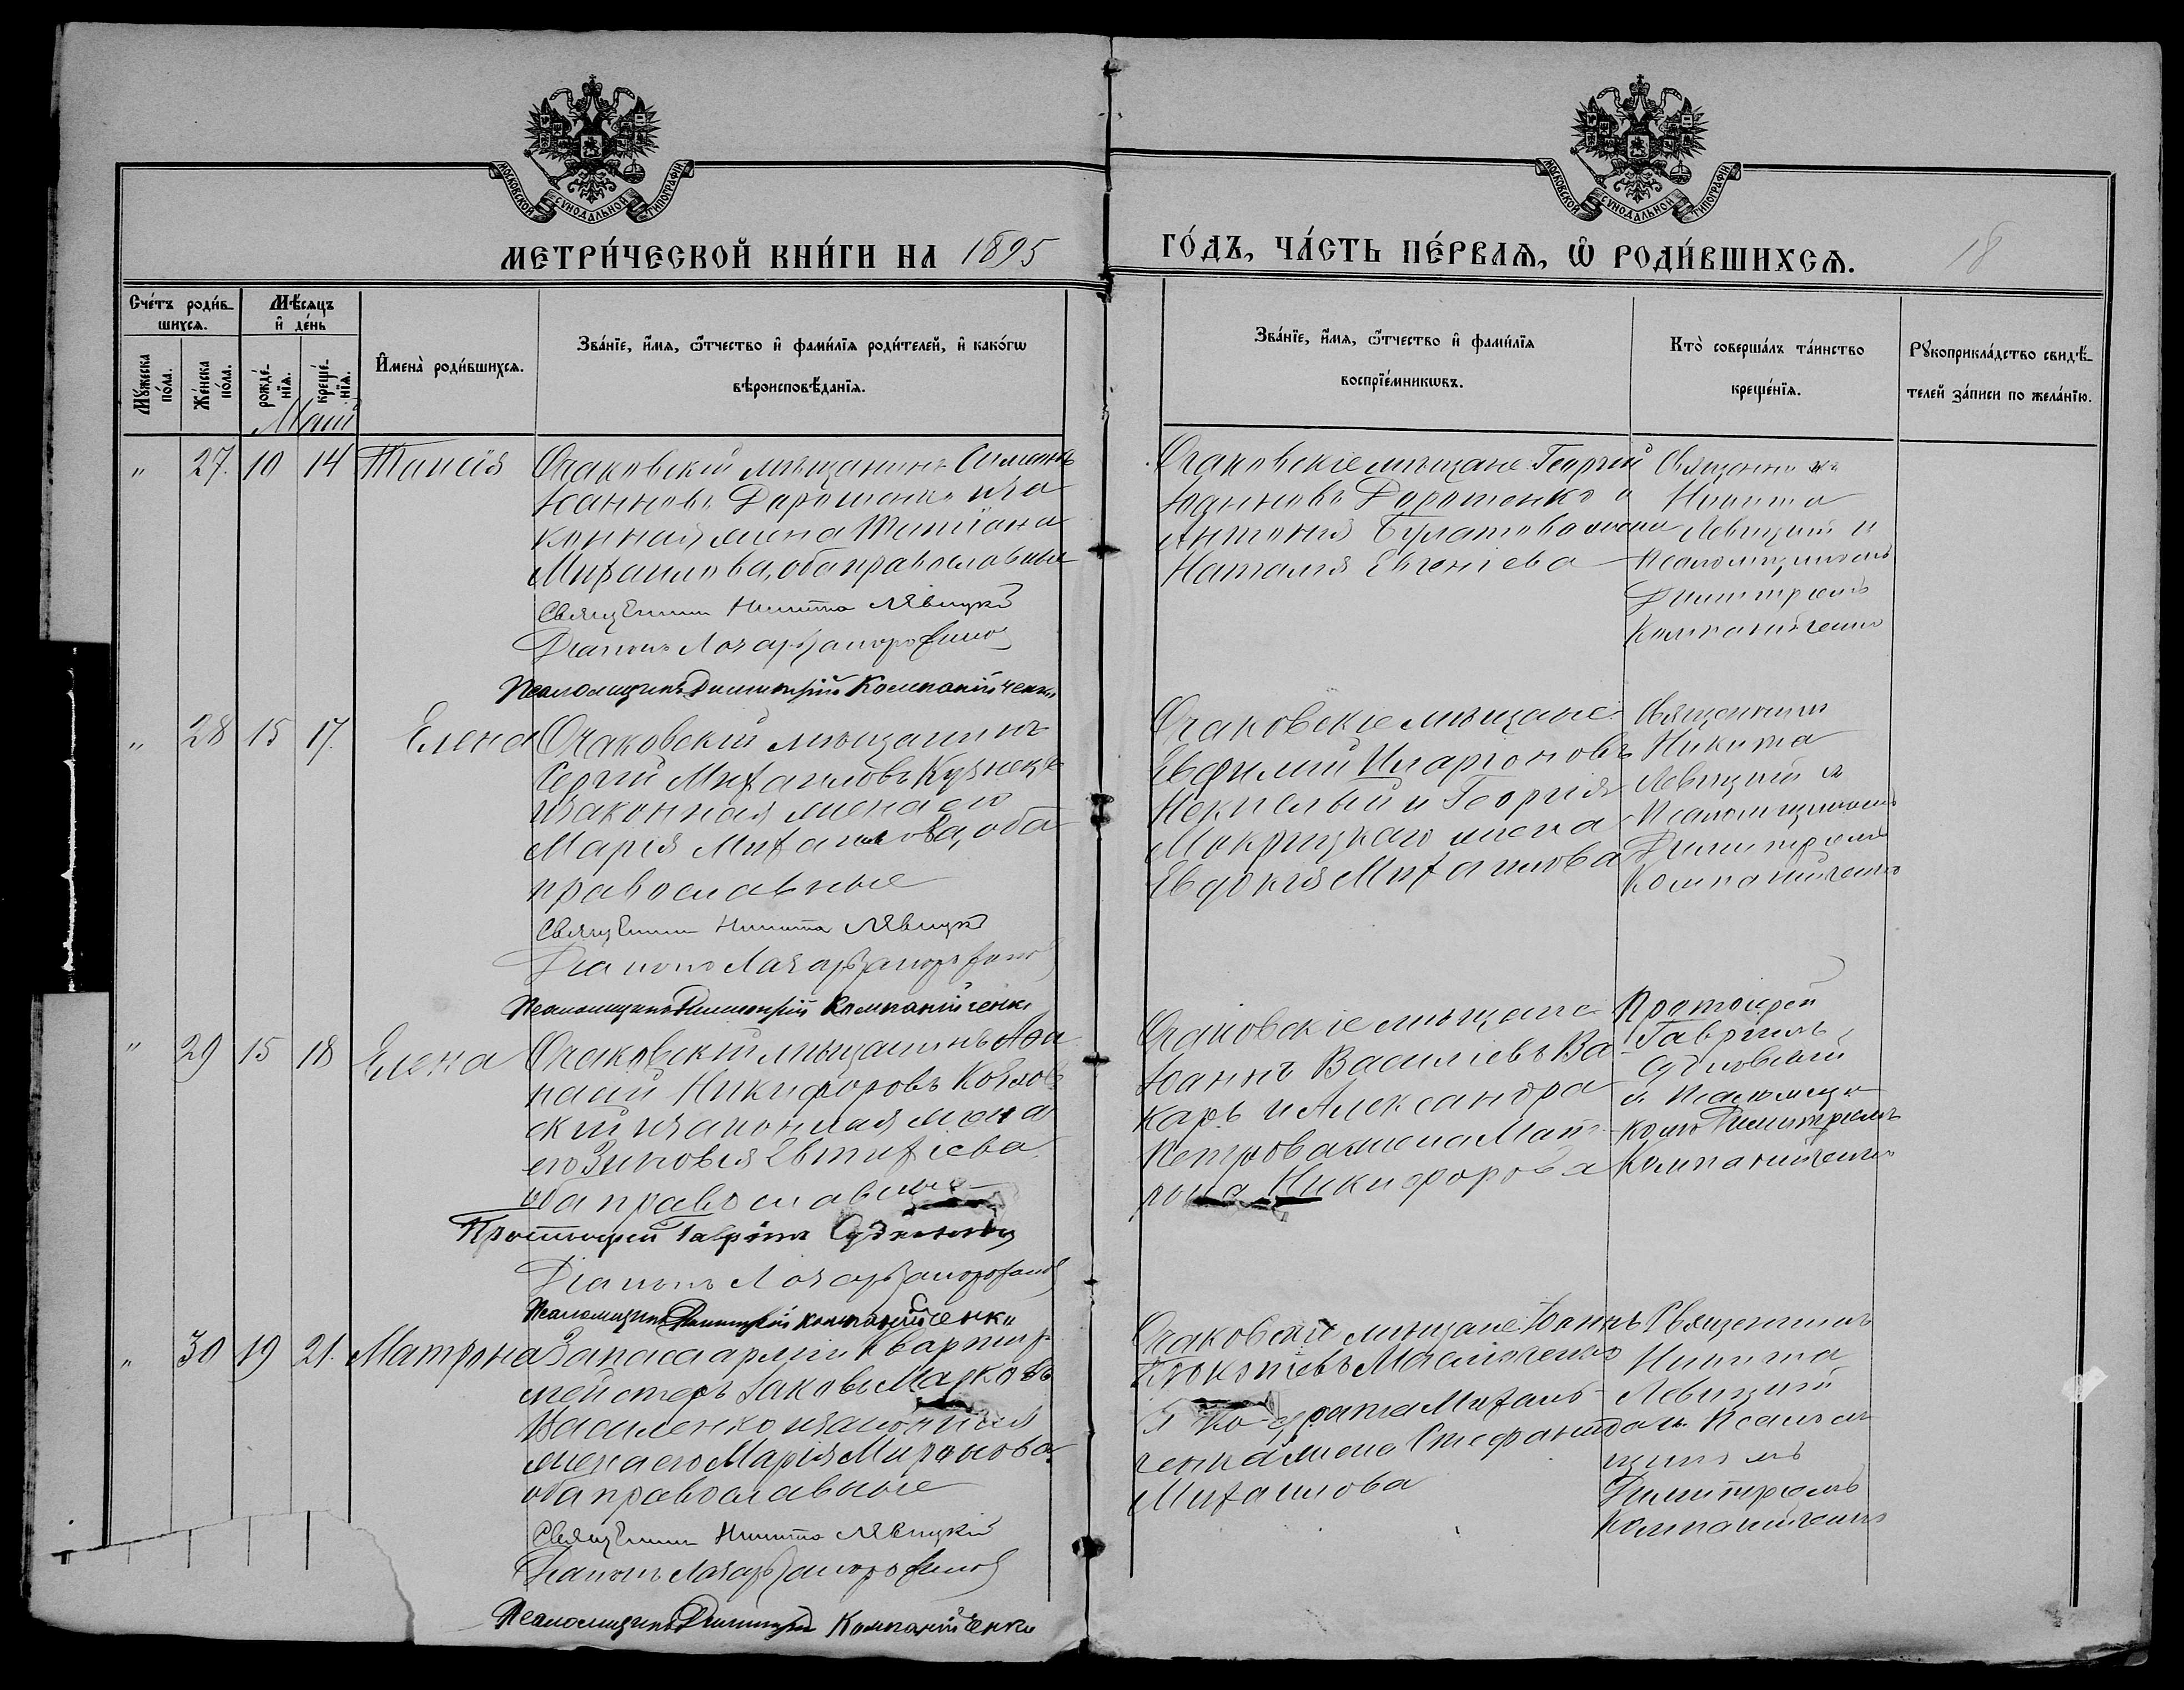 МОСКОВСКОЙ СѴНОДАЛЬНОЙ ТИПОГРАФІИ
МОСКОВСКОЙ СѴНОДАЛЬНОЙ ТИПОГРАФІИ
МЕТРИ́ЧЕСКОЙ КНИ́ГИ НА 1895
ГО́ДЪ, ЧА́СТЬ ПЕ́РВАѦ, Ѡ҆ РОДИ́ВШИХСѦ.
18
Сче́тъ роди́в-
шихсѧ.
Мꙋжеска по́ла.
Же́нска по́ла.
Мѣ́сѧцъ
и҆ де́нь
рожде́-
нїѧ.
креще́-
нїѧ.
Май
И҆мена̀ роди́вшихсѧ.
Зва́нїе, и҆́мѧ, ѻ҆́тчество и҆ фами́лїѧ роди́телей, и҆ како́гѡ
вѣроисповѣ́данїѧ.
Зва́нїе, и҆́мѧ, ѻ҆́тчество и҆ фами́лїѧ
воспрїе́мникѡвъ.
Кто̀ соверша́лъ та́инство
креще́нїѧ.
Рꙋкоприкла́дство свидѣ́-
телей за́писи по жела́нїю.
" 27. 10 14 Таисія
Очаковскій мѣщанинъ Симеонъ
Іоанновъ Дорошенко и за
конная жена Татіана
Михаилова, оба православные
Священник Никита Лѣвицкій
Діаконъ Лазарь
Псаломщикъ Димитрій Компанійченко
Очаковскіе мѣщане: Георгій
Іоанновъ Дорошенко и
Антонія Булатова жена
Наталія Евгеніева
Священникъ
Никита
Левицкій и
Псаломщикомъ
Димитріемъ
Компанійченко
" 28 15 17. Елена
Очаковскій мѣщанинъ
Сергій Михаиловъ Кузнецъ
и законная жена его
Марія Михаилова, оба
православные
Священник Никита Лѣвицкій
Діаконъ Лазарь
Псаломщикъ Димитрій Компанійченко
Очаковскіе мѣщане:
Евфимій Иларіоновъ
Некислый и Георгія
Мокрицкаго жена
Евдокія Михаилова
Священникъ
Никита
Левицкій и
Псаломщикомъ
Димитріемъ
Компанійченко
" 29 15 18 Елена
Очаковскій мѣщанинъ Аѳа
насій Никифоровъ Козлов
скій и законная жена
его Зиновія Евтихіева
оба православные
Протоіерей Гавріилъ Судковскій
Діаконъ Лазарь
Псаломщикъ Димитрій Компанійченко
Очаковскіе мѣщане
Іоаннъ Василіевъ Ва
каръ и Александра
Петрова жена Мат
рона Никифорова
Протоіерей
Гавріилъ
Судковскій
и Псаломщи
комъ Димитріемъ
Компанійченко
" 30 19 21. Матрона
Запаса арміи квартир
мейстеръ Іаковъ Марковъ
Василенко и законная
жена его Марія Миронова
оба православные
Священник Никита Лѣвицкій
Діаконъ Лазарь
Псаломщикъ Димитрій Компанійченко
Очаковскіе мѣщане: Іоаннъ
Прокопіевъ Маслюченко
и Кодрата Михаль-
ченка жена Стефанида
Михаилова
Священникъ
Никита
Левицкій
съ Псалом
щикомъ
Димитріемъ
Компанійченко